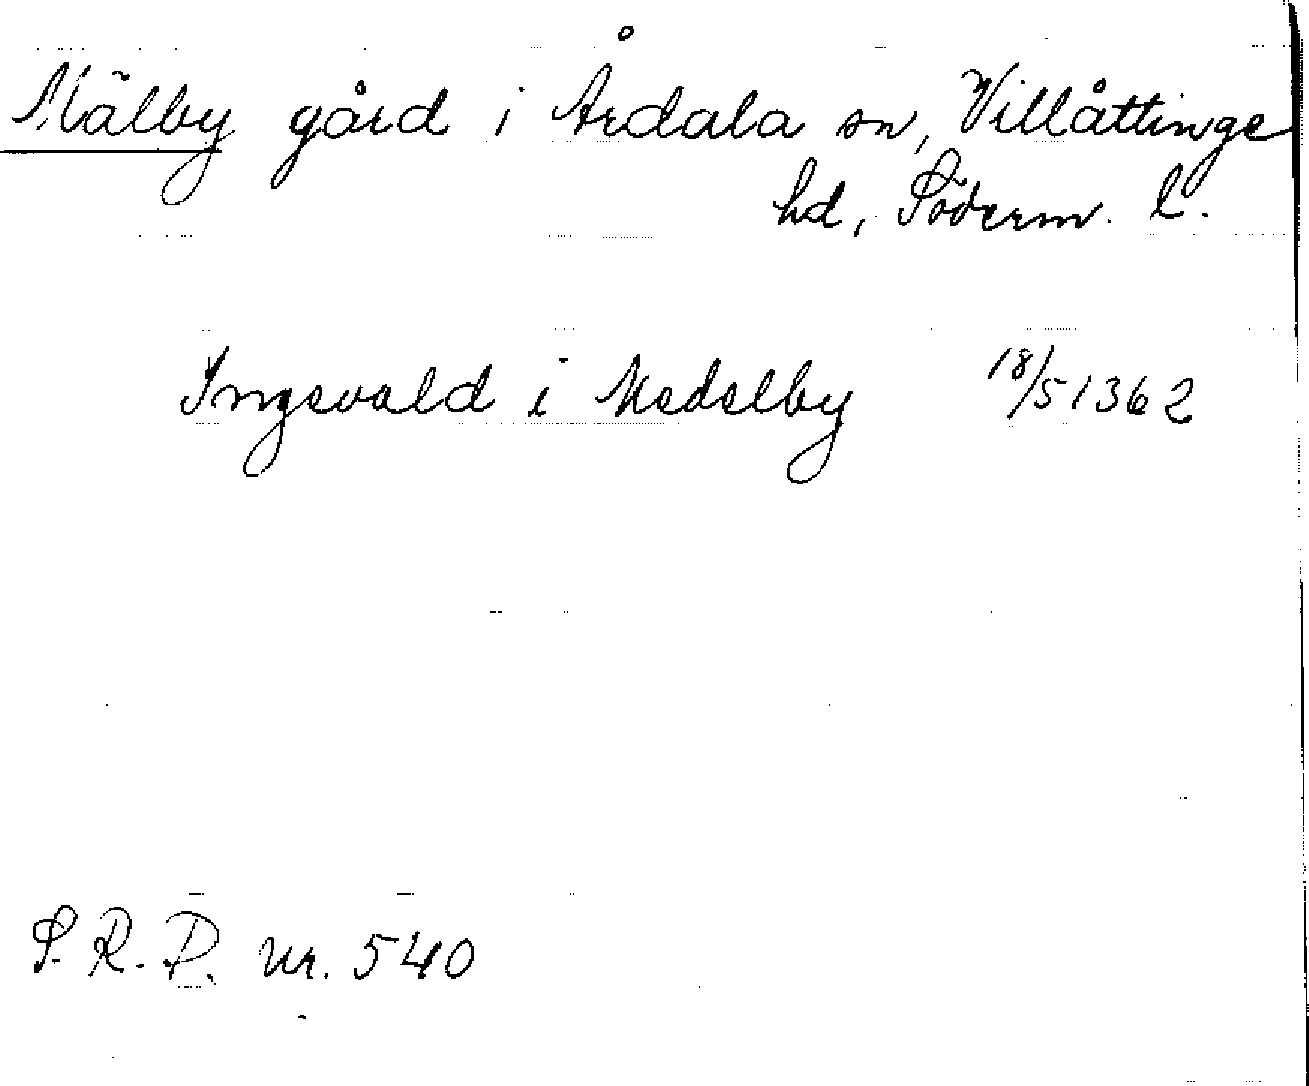 Mälby gård i Årdala sn, Villåttinge
hd, Söderm. l.
Ingevald i Medelby 18/5 1362
S.R.P. nr. 540